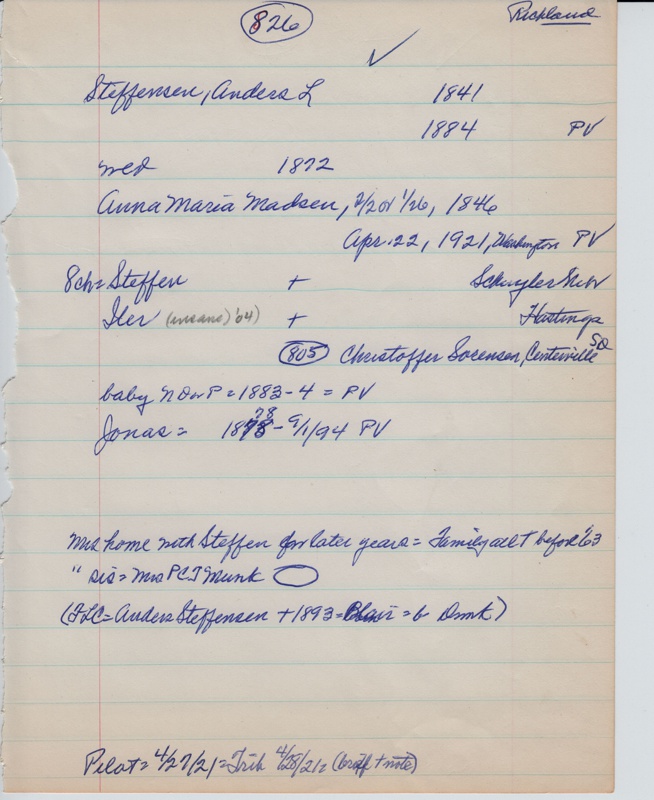 826
Richland
✓
Steffensen, Anders L 1841
1884 PV
wed 1872
Anna Maria Madsen, 2/20 or 1/26, 1846
Apr. 22, 1921, Washington PV
8ch = Steffen + Schuyler Nebr
Iler (insane) '04) + Hastings
805 Christoffer Sorensen, Centerville SD
baby N D or P = 1883-4 = PV
Jonas = 1878 - 9/1/94 PV
Mrs home with Steffen for later years = Family all T before '63
" sis = Mrs P C J Munk
(FLC = Anders Steffensen + 1893 = Blair = b Dmk)
Pilot = 4/27/21 = Trib 4/28/21 = (brief + note)